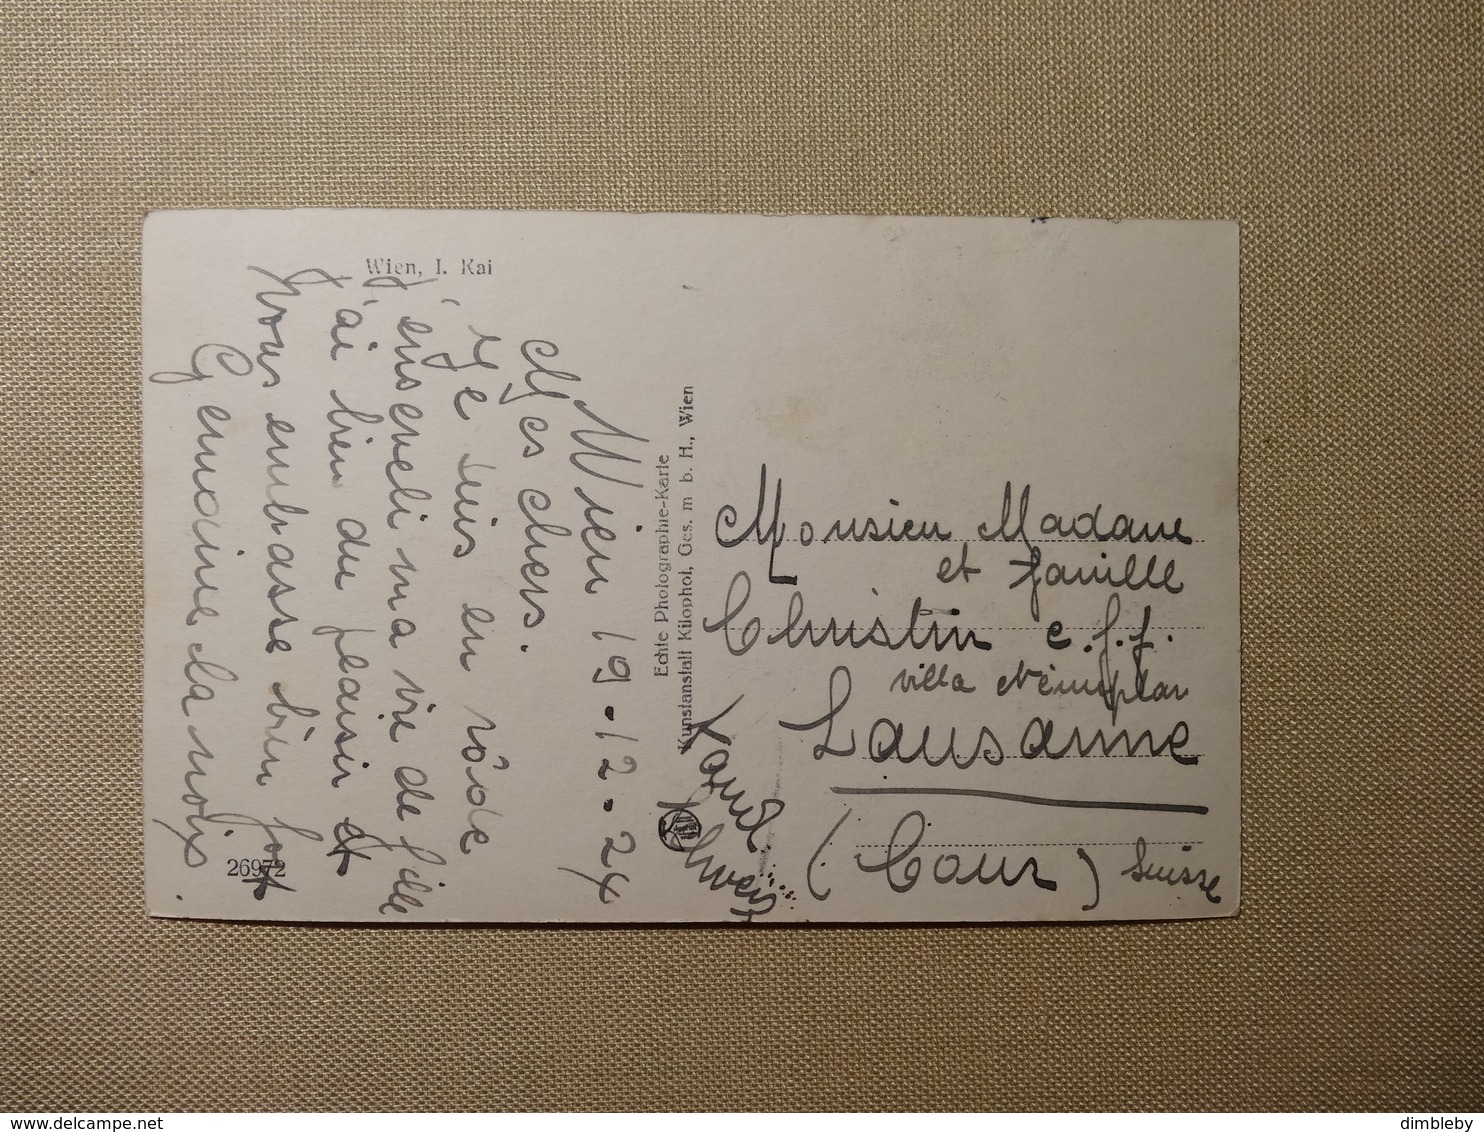 Wien, I. Kai
Wien 19-12-24
Mes chers.
Je suis en rôde
J'enseveli ma vie de fille
J'ai bien du plaisir et
Vous embrasse bien fort
Germaine
26972
Echte Photographie-Karte
Kunstanstalt Kilophot, Ges. m b. H., Wien
Monsieur Madame
et famille
Christin
villa
Lausanne
(Cour) Suisse
Vaud
Schweiz
dimbleby